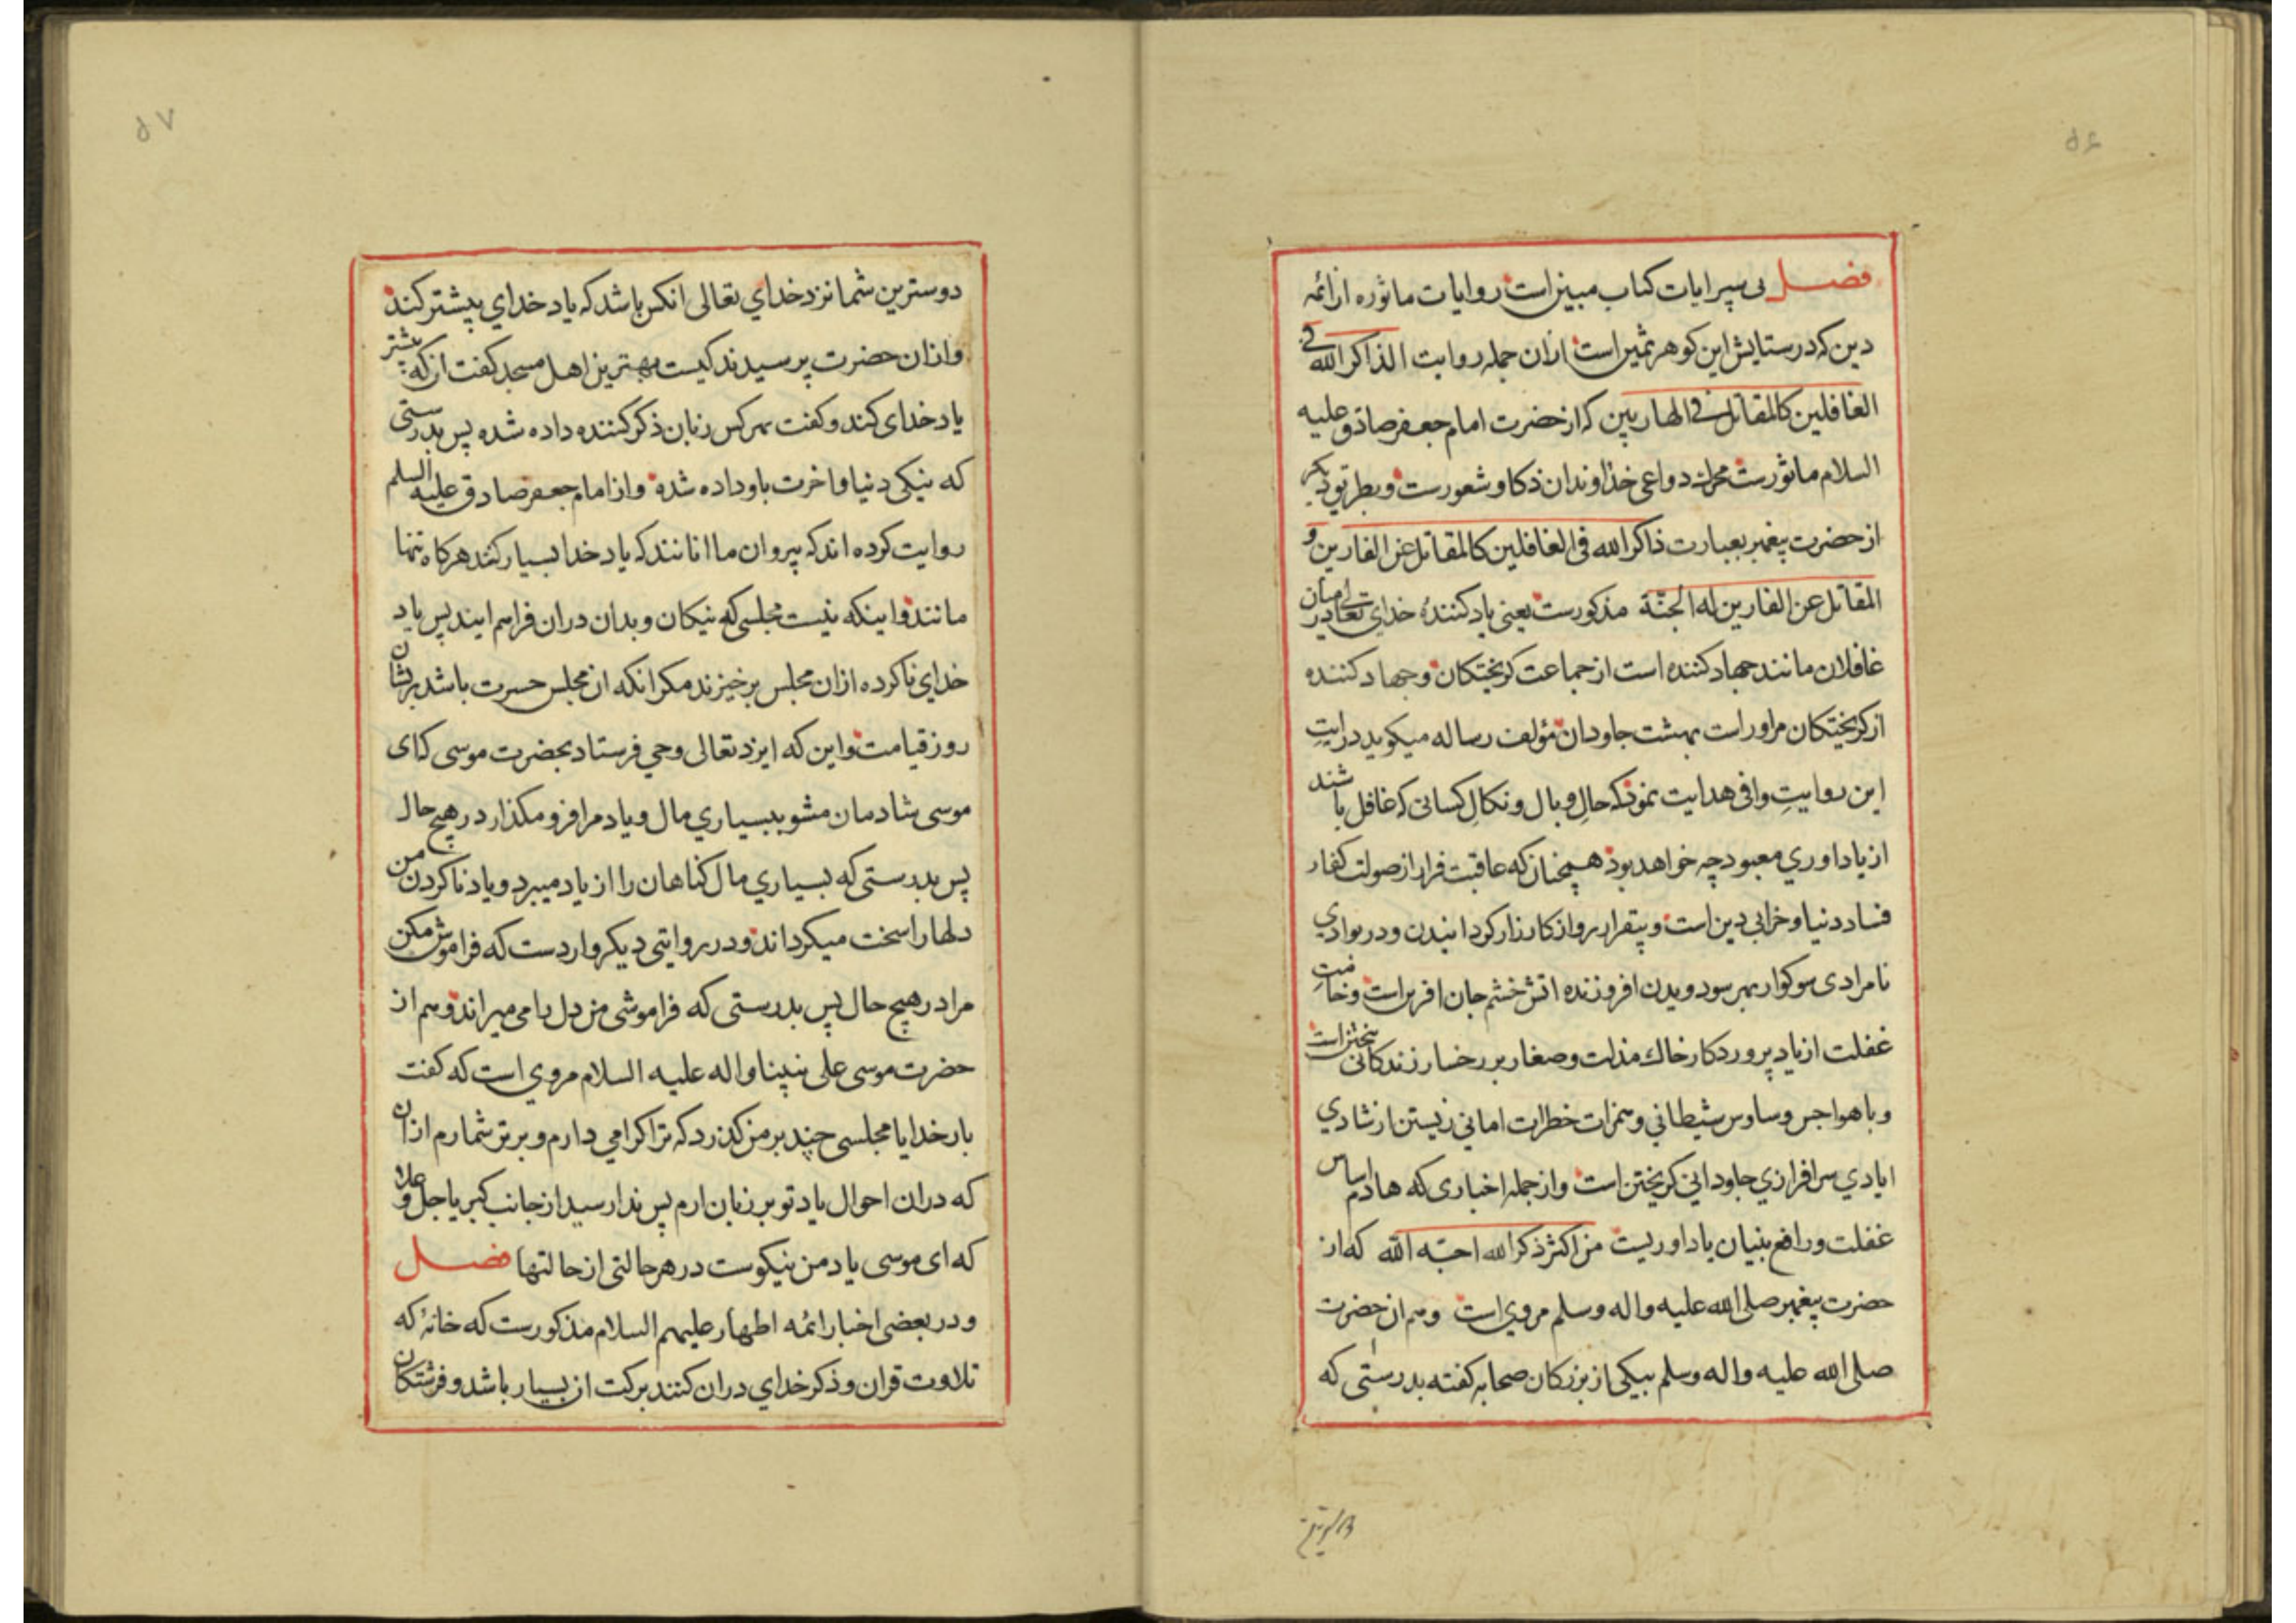 ۵۶
فصل پی سپر ایات کتاب مبین است روایات ماثوره از ائمه
دین که در ستایش این کوهر ثمین است ازان جمله روایت الذاکر الله فی
الغافلین کالمقاتل فی الهاربین که از حضرت امام جعفر صادق علیه
السلام ماثورست محرك دواعی خداوندان ذکا و شعورست و بطریق دیکر
از حضرت پیغمبر بعبارت ذاکر الله فی الغافلین کالمقاتل عن الفارین و
المقاتل عن الفارین له الجنّة مذکورست یعنی یاد کنندهٔ خدای تعالی در میان
غافلان مانند جهاد کننده است از جماعت کریختکان و جهاد کننده
از کریختکان مر اوراست بهشت جاودان مؤلف رساله میکوید درایتِ
این روایتِ وافی هدایت نمود که حالِ و بال و نکالِ کسانی که غافل باشند
از یاد اوری معبود چه خواهد بود همچنان که عاقبت فرار از صولت کفار
فساد دنیا و خرابی دین است و بیقرار رو از کارزار کردانیدن و در بوادی
نامرادی سوکوار بهر سو دویدن افروزنده اتش خشم جان افرین است وخامتِ
غفلت از یاد پروردکار خاك مذلت و صغار بر رخسار زندکانی بیختن است
و با هواجس و ساوس شیطانی و همزات خطرات امانی زیستن از شادی
ابادی سرافرازی جاودانی کریختن است و از جمله اخباری که هادم اساس
غفلت و رافع بنیان یاد اوریست من اکثر ذکر الله احبّه الله که از
حضرت پیغمبر صلی الله علیه و اله و سلم مروی است و هم ان حضرت
صلی الله علیه و اله وسلم بیکی از بزرکان صحابه کفته بدرستی که
۵۷
دوسترین شما نزد خدای تعالی انکس باشد که یاد خدای بیشتر کند
و ازان حضرت پرسیدند کیست بهترین اهل مسجد کفت ان که بیشتر
یاد خدای کند و کفت هر کس زبان ذکر کننده داده شده پس بدرستی
که نیکی دنیا و اخرت باو داده شده و از امام جعفر صادق علیه السلم
روایت کرده اند که پیروان ما انانند که یاد خدا بسیار کنند هر کاه تنها
مانند و اینکه نیست مجلسی که نیکان و بدان دران فراهم ایند پس یاد
خدای نا کرده ازان مجلس بر خیزند مکر انکه ان مجلس حسرت باشد بر ایشان
روز قیامت و این که ایزد تعالی وحی فرستاد بحضرت موسی که ای
موسی شادمان مشو ببسیاری مال و یاد مرا فرو مکذار در هیچ حال
پس بدرستی که بسیاری مال کناهان را از یاد میبرد و یاد نا کردن من
دلها را سخت میکرداند و در روایتی دیکر واردست که فراموش مکن
مرا در هیچ حال پس بدرستی که فراموشی من دل را می میراند و هم از
حضرت موسی علی نبینا و اله علیه السلام مروی است که کفت
بار خدایا مجلسی چند بر من کذرد که ترا کرامی دارم و برتر شمارم ازان
که دران احوال یاد تو بر زبان ارم پس ندا رسید از جانب کبریا جل و علا
که ای موسی یاد من نیکوست در هر حالتی از حالتها فصل
و در بعضی اخبار ائمه اطهار علیهم السلام مذکورست که خانهٔ که
تلاوت قران و ذکر خدای دران کنند برکت ان بسیار باشد و فرشتکان